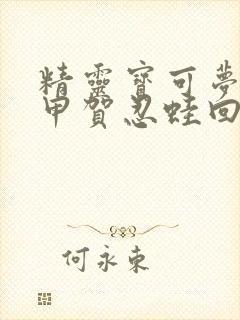 精靈寶可夢
甲賀忍蛙回
何永東